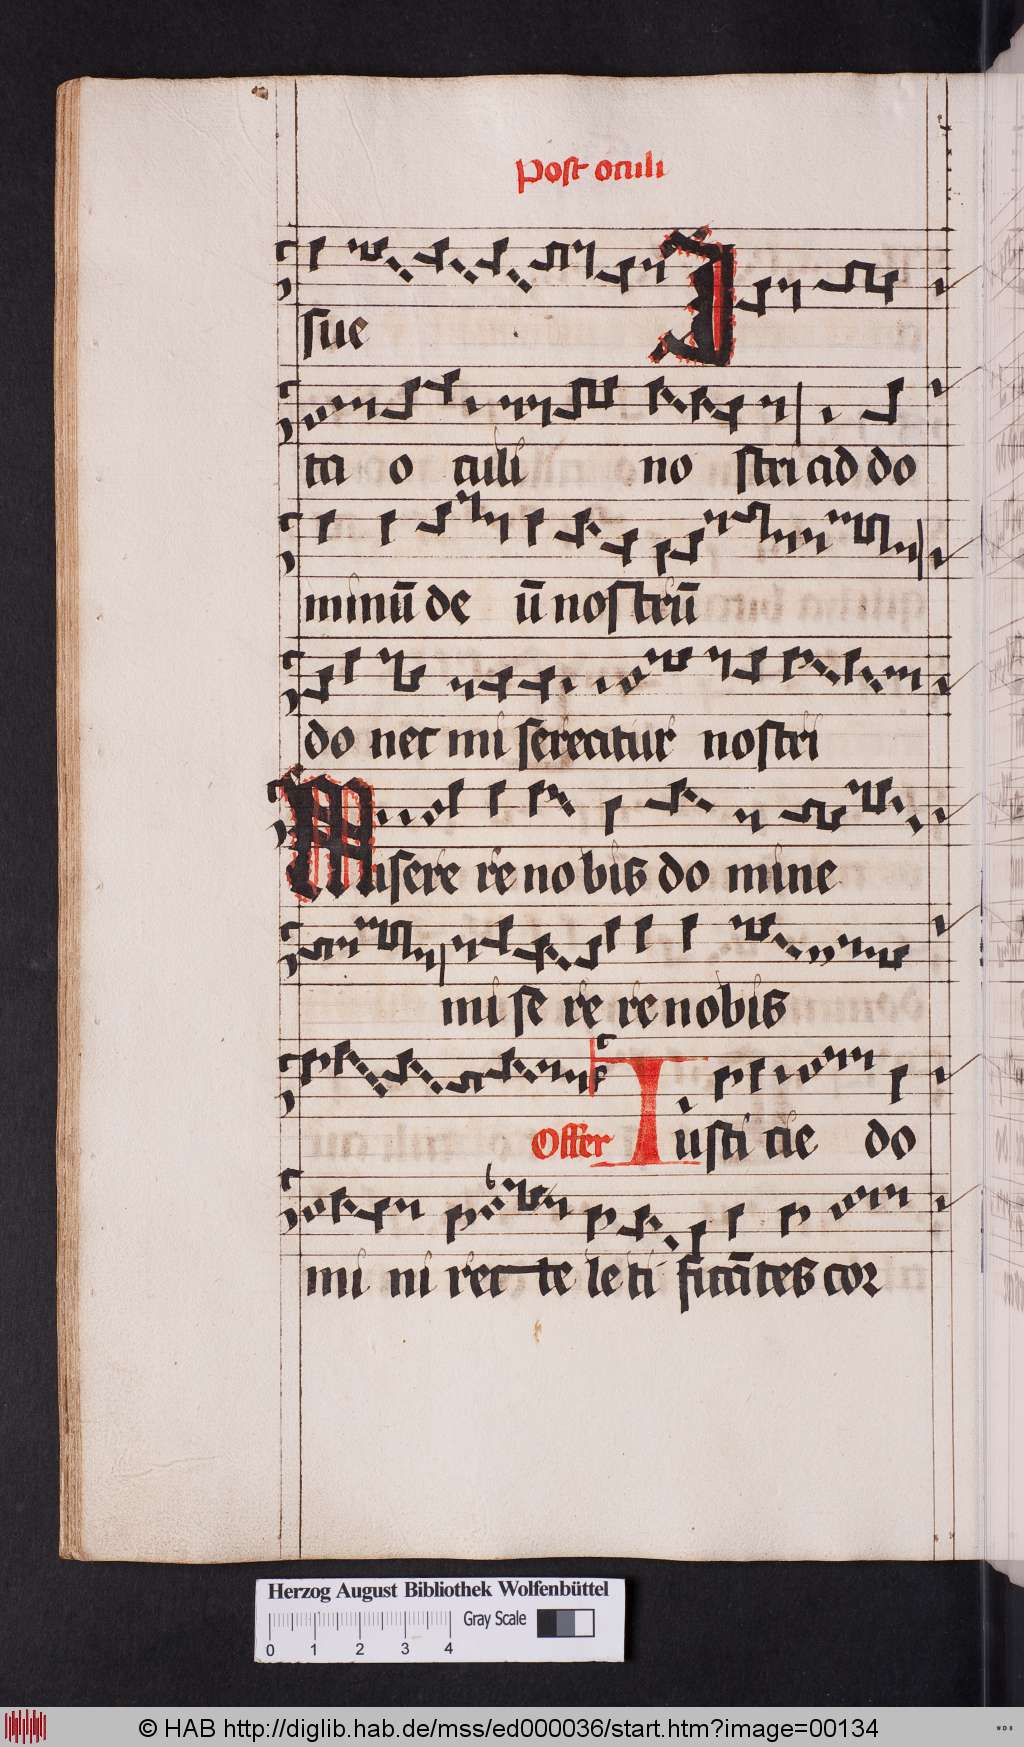 Post oculi
sue I
ta o culi no stri ad do
minū de ū nostrū
do nec mi sereatur nostri
Misere re nobis do mine
mi se re re nobis
Offer Iusti cie do
mi ni rec te le ti ficātes cor
Herzog August Bibliothek Wolfenbüttel
Gray Scale
0 1 2 3 4
© HAB http://diglib.hab.de/mss/ed000036/start.htm?image=00134